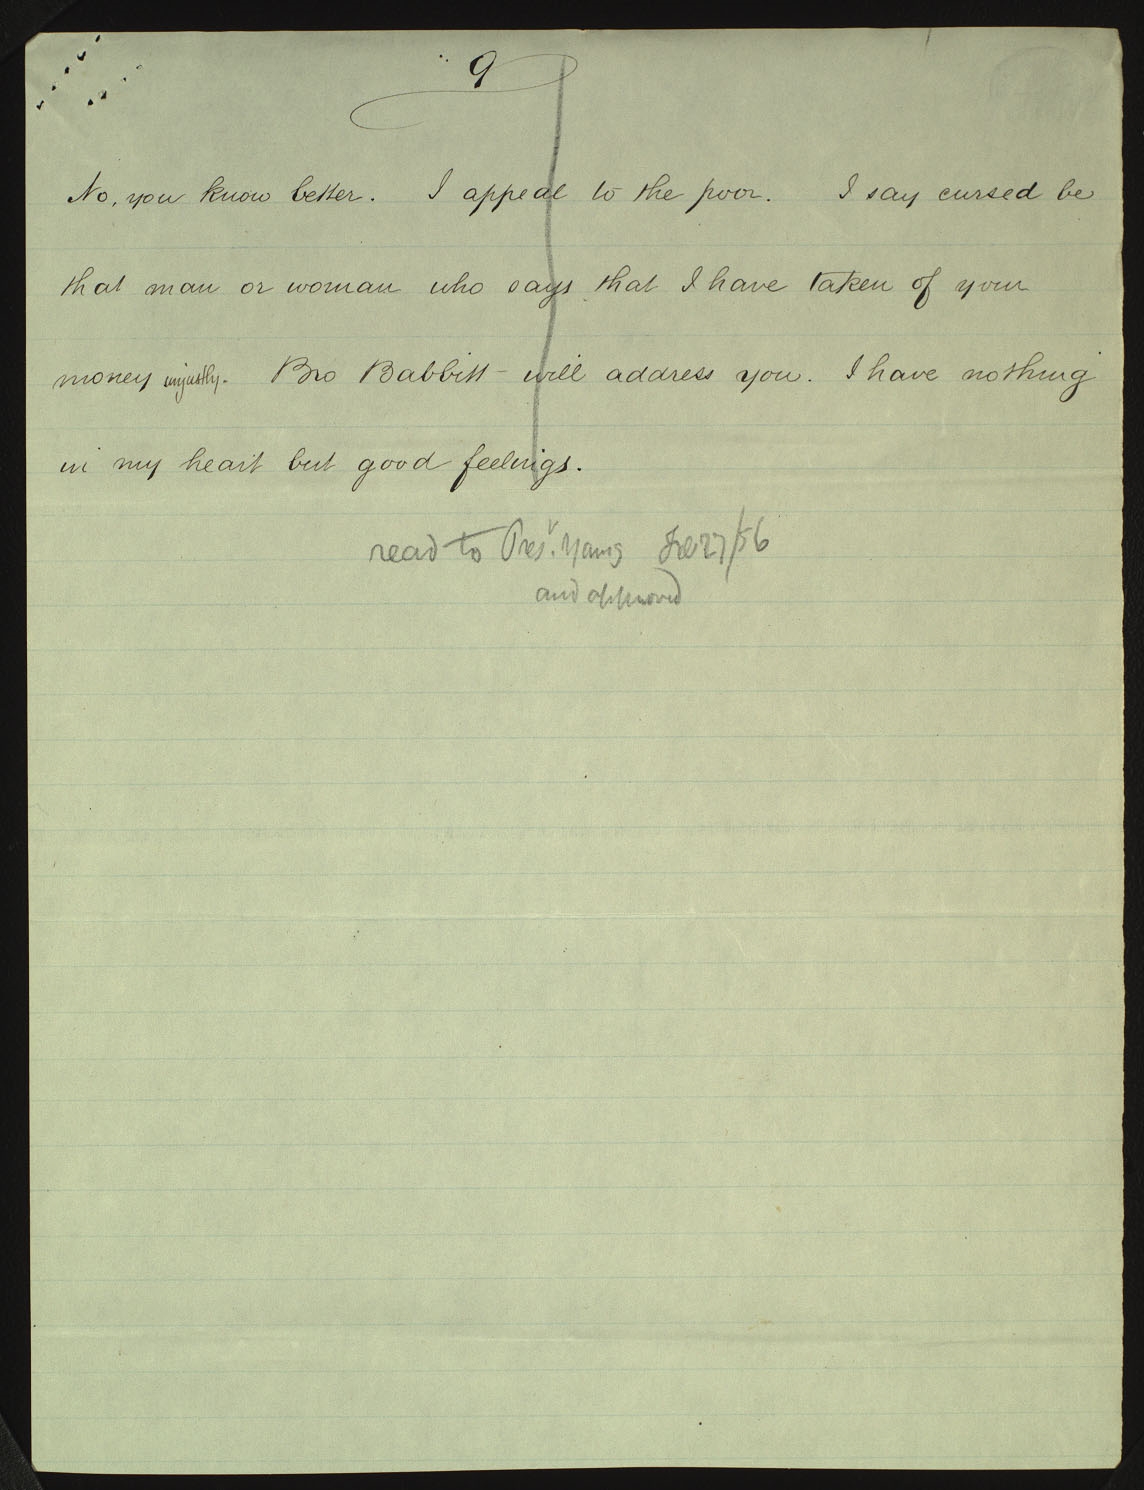 9
No, you know better. I appeal to the poor. I say cursed be
that man or woman who says that I have taken of your
money unjustly. Bro Babbitt - will address you. I have nothing
in my heart but good feelings.
read to Prest. Young Feb 27/56
and approved